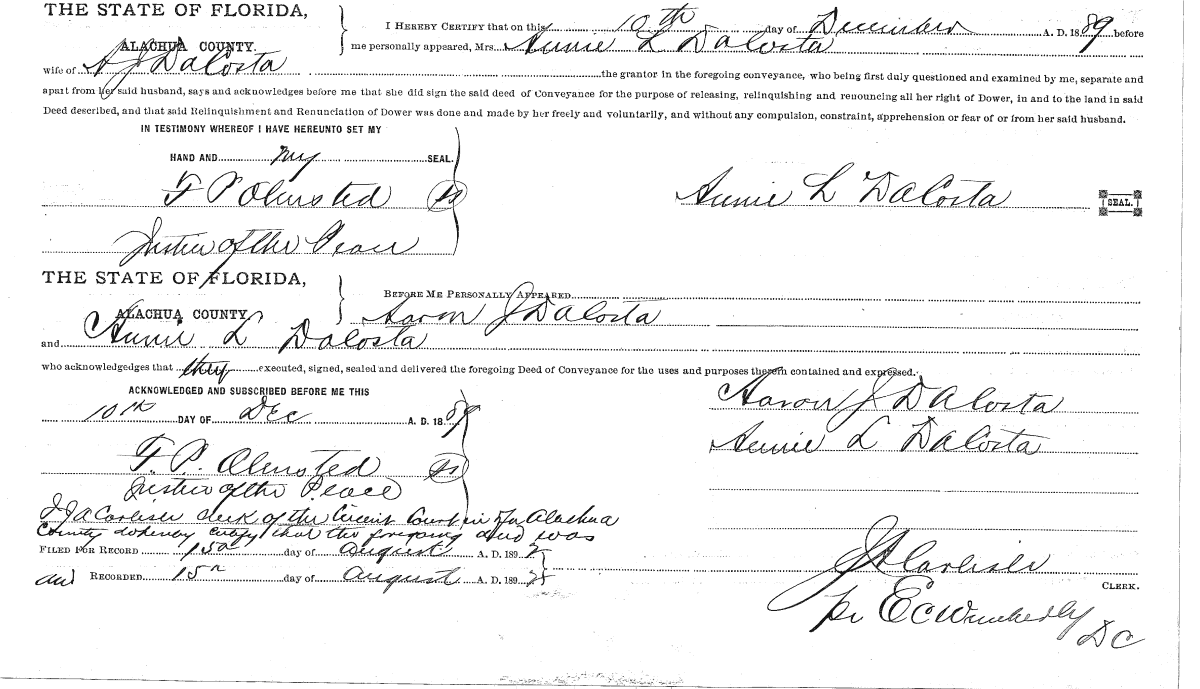 THE STATE OF FLORIDA,
ALACHUA COUNTY.
I HEREBY CERTIFY that on this 10th day of December A. D. 1889 before
me personally appeared, Mrs. Annie L DaCosta
wife of A J DaCosta the grantor in the foregoing conveyance, who being first duly questioned and examined by me, separate and
apart from her said husband, says and acknowledges before me that she did sign the said deed of Conveyance for the purpose of releasing, relinquishing and renouncing all her right of Dower, in and to the land in said
Deed described, and that said Relinquishment and Renunciation of Dower was done and made by her freely and voluntarily, and without any compulsion, constraint, apprehension or fear of or from her said husband.
IN TESTIMONY WHEREOF I HAVE HEREUNTO SET MY
HAND AND my SEAL.
F P Olmsted
Annie L DaCosta SEAL.
Justice of the Peace
THE STATE OF FLORIDA,
ALACHUA COUNTY
BEFORE ME PERSONALLY APPEARED
Aaron J DaCosta
and Annie L DaCosta
who acknowledges that they executed, signed, sealed and delivered the foregoing Deed of Conveyance for the uses and purposes therein contained and expressed.
ACKNOWLEDGED AND SUBSCRIBED BEFORE ME THIS
10th DAY OF Dec A. D. 1889
Aaron J DaCosta
Annie L DaCosta
F. P. Olmsted
Justice of the Peace
I J A Carlisle clerk of the Circuit Court in for Alachua
County do hereby certify that the foregoing deed was
FILED FOR RECORD 15th day of August A. D. 1892
and RECORDED 15th day of August A. D. 189
J A Carlisle
CLERK.
pr E C Wimberly
DC